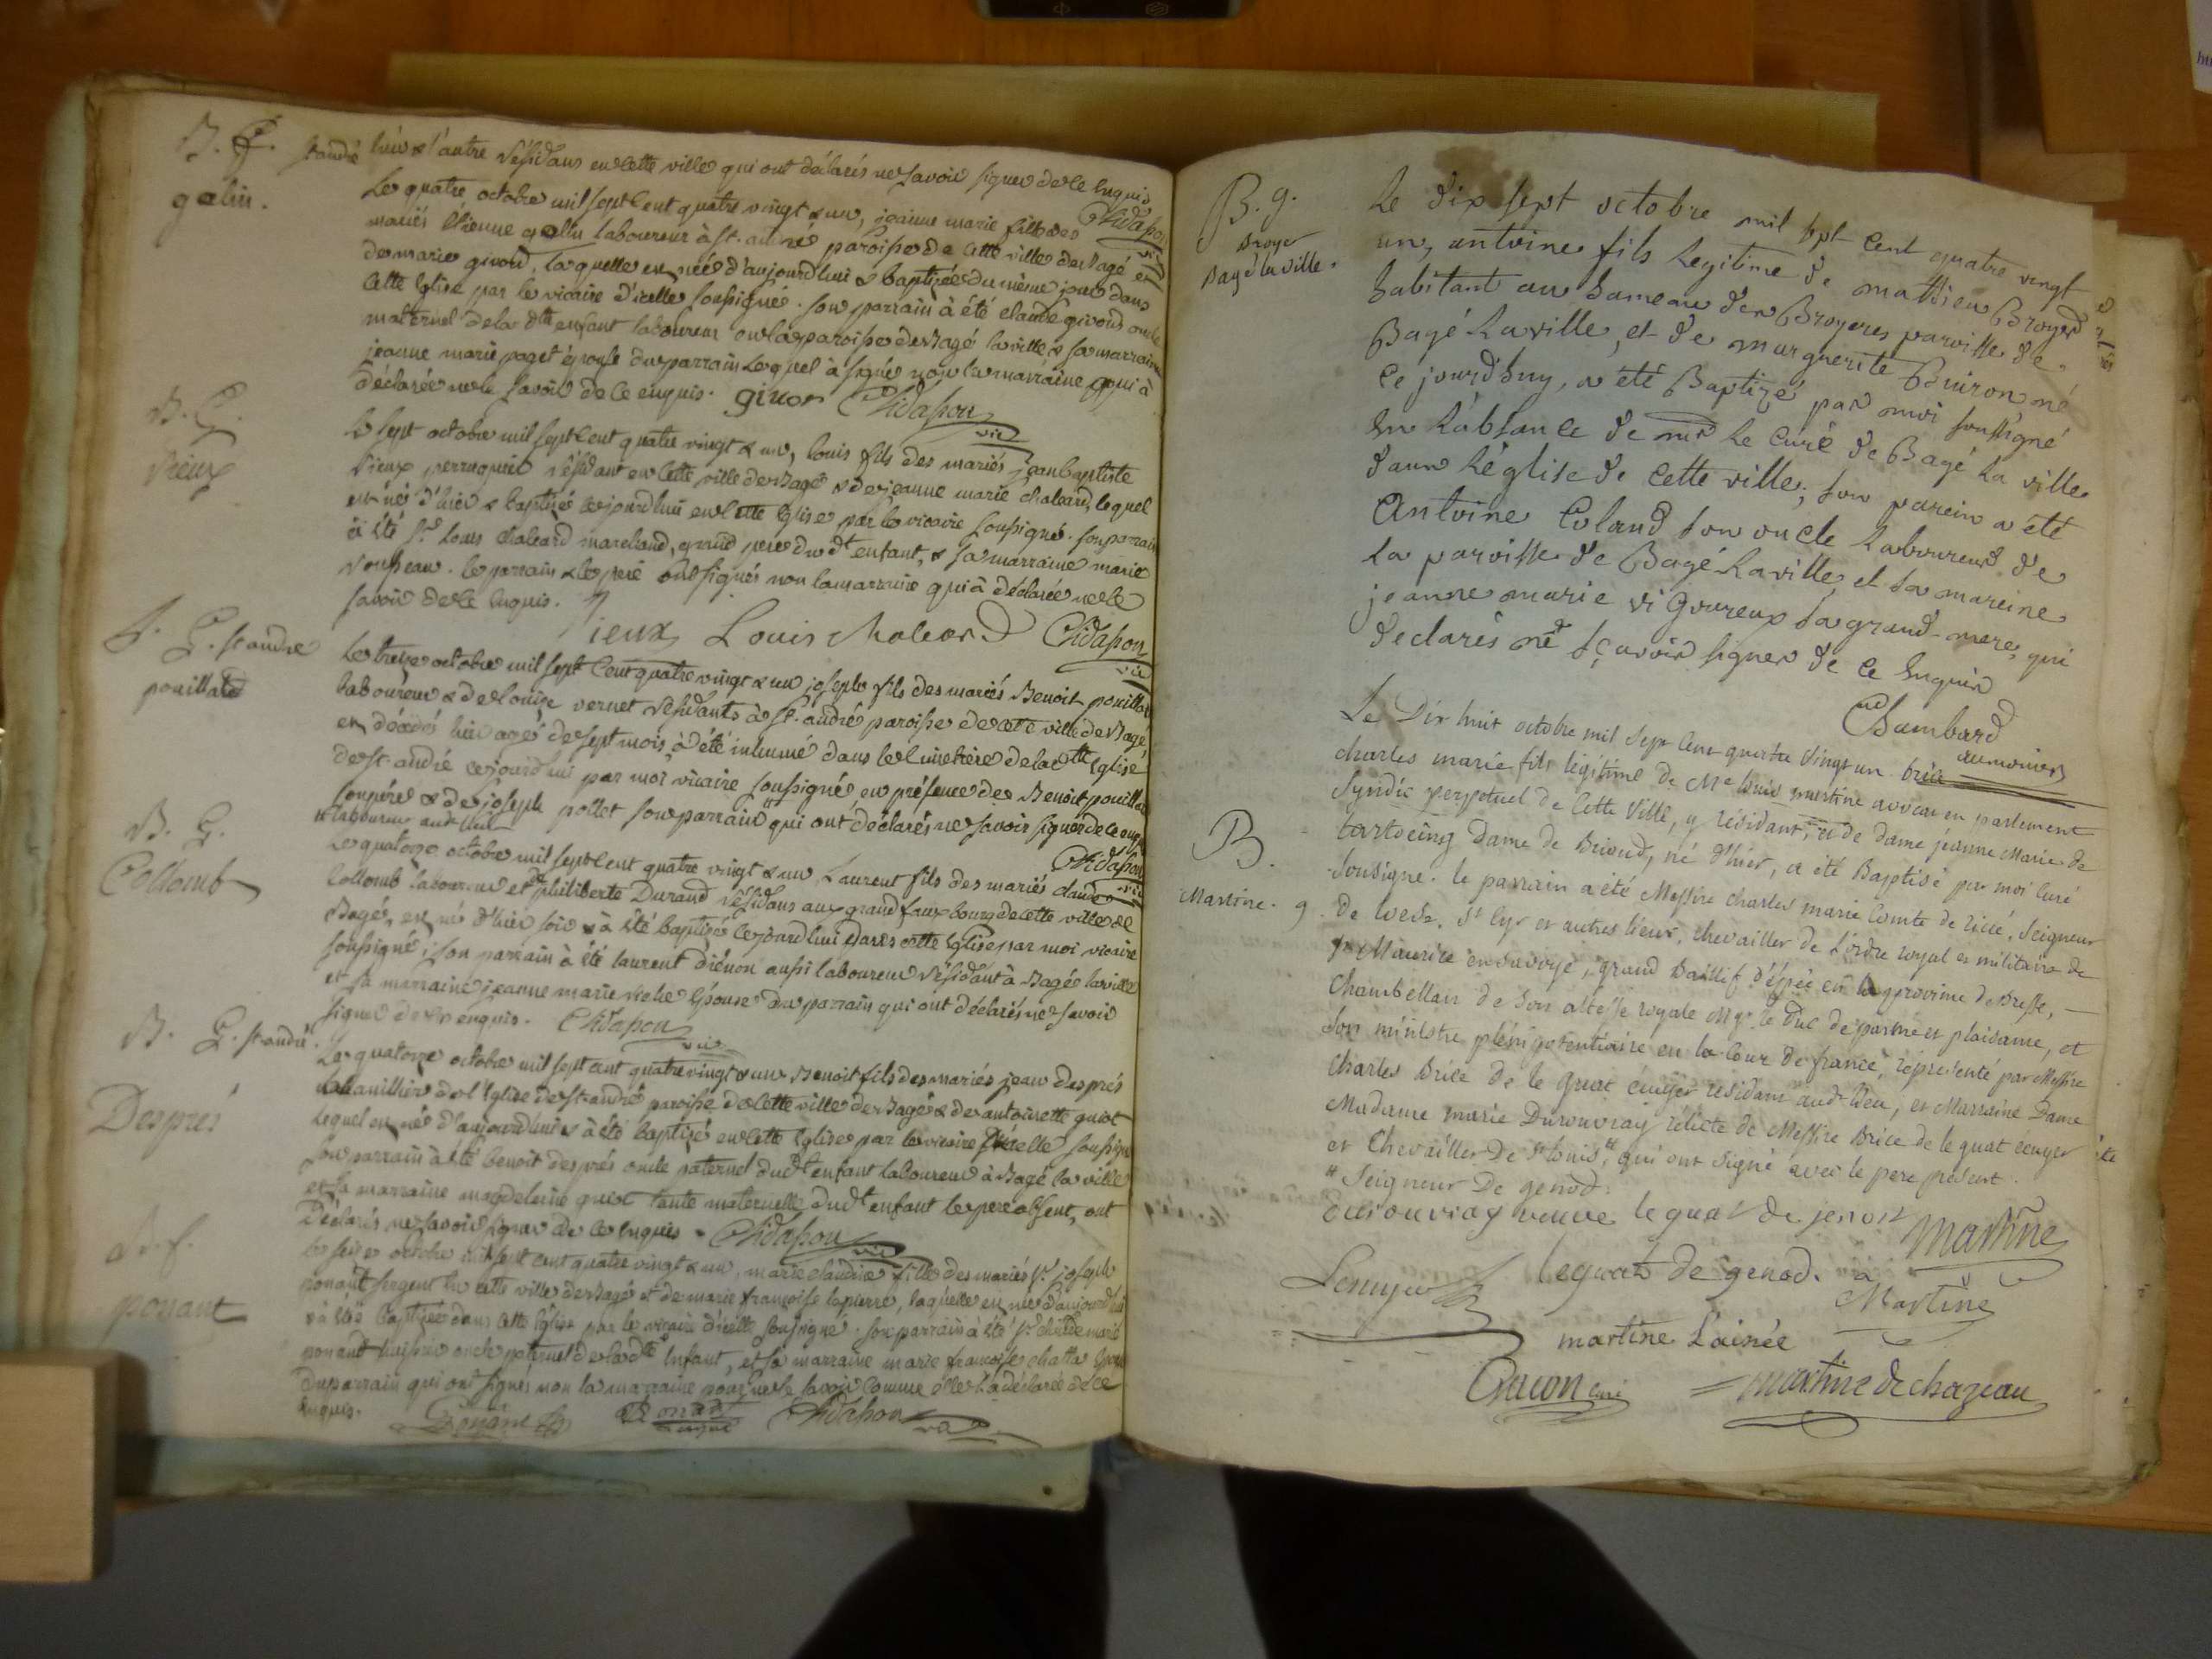 l'un & l'autre résidans en cette ville qui ont déclarés ne savoir signer de ce enquis
Chidapon
vic
B. F.
galin.
st andré
Le quatre octobre mil sept cent quatre vingt & un, jeanne marie fille des
mariés Etienne gallin laboureur à st. andré paroisse de cette ville de Bagé et
de marie givord, laquelle est née d'aujourd'hui & baptisée du même jour dans
cette Eglise par le vicaire d'icelle soussigné. son parrain à été claude givord oncle
maternel de la dtte enfant laboureur en la paroisse de Bagé la ville & sa marraine
jeanne marie paget épouse du parrain lequel à signé non la marraine qui à
déclarée ne le savoir de ce enquis. givor Chidapon
vic
B. G.
Vieux
Le sept octobre mil sept cent quatre vingt & un, louis fils des mariés jean baptiste
Vieux perruquier résidant en cette ville de Bagé & de jeanne marie chaleard, lequel
est né d'hier & baptisé ce jourd'hui en cette Eglise par le vicaire soussigné. son parrain
à été Sr. Louis chaleard marchand, grand pere du dt enfant, & sa marraine marie
. le parrain & le pere ont signés non la marraine qui à déclarée ne le
savoir de ce enquis.
Vieux Louis chaleard Chidapon
vic
S. G. st andré
pouillat
Le treize octobre mil sept cent quatre vingt & un joseph fils des mariés Benoit pouillat
laboureur & de louise vernet résidants à st. andré paroisse de cette ville de Bagé,
est décédé hier agé de sept mois, à été inhumé dans le cimetière de la dtte Eglise
de st. andré ce jourd'hui par moi vicaire soussigné en présence de Benoit pouillat
son père & de joseph pollet son parrain # qui ont déclarés ne savoir signer de ce enquis
# laboureur aud. lieu
Chidapon
vic
B. G.
Collomb
Le quatorze octobre mil sept cent quatre vingt & un Laurent fils des mariés claude
Collomb laboureur et de philiberte Durand résidans aux grand faux bourg de cette ville de
Bagé, est né d'hier soir & à été baptisé ce jourd'hui dans cette Eglise par moi vicaire
soussigné; son parrain à été laurent diénon aussi laboureur résidant à Bagé la ville
et sa marraine jeanne marie épouse du parrain qui ont déclarés ne savoir
signer de ce enquis. Chidapon
vic
B. G. st andré.
Després
Le quatorze octobre mil sept cent quatre vingt & un Benoit fils des mariés jean després
de l'Eglise de st. andré paroisse de cette ville de Bagé & de antoinette guiot
lequel est né d'aujourd'hui & à été baptisé en cette Eglise par le vicaire d'icelle soussigné
son parrain à été benoit després oncle paternel dudt enfant laboureur à Bagé la ville
et sa marraine magdeleine guiot tante maternelle dudt enfant le pere absent, ont
déclarés ne savoir signer de ce enquis. Chidapon
vic
B. f.
ponant
Le seize octobre mil sept cent quatre vingt & un, marie claudine fille des mariés Sr. joseph
ponant sergent en cette ville de Bagé et de marie françoise lapierre, laquelle est née d'aujourd'hui
& à été baptisée dans cette Eglise par le vicaire d'icelle soussigné. son parrain à été Sr. claude marie
ponant huissier oncle paternel de la dtte Enfant, et sa marraine marie françoise chatta épouse
du parrain qui ont signés non la marraine pour ne le savoir comme elle l'a déclarée de ce
enquis.
Ponant Chidapon
vic
B. g.
Broyer
Bagé la ville.
Le dix sept octobre mil sept cent quatre vingt
un, antoine fils legitime de mathieu Broyer
habitant au hameau des Broyers, paroisse de
Bagé la ville, et de marguerite Buiron né
ce jourd'huy, a été Baptizé par moi soussigné
en l'absence de mr le Curé de Bagé la ville
dans l'église de cette ville; son parein a été
Antoine Coland son oncle laboureur de
la paroisse de Bagé la ville, et sa mareine
jeanne marie vigoureux sa grand-mere, qui
declarés ne sçavoir signer de ce enquis
Chambard
aumonier
B.
Martine. g.
Le Dix huit octobre mil sept cent quatre vingt un brice
charles marie fils légitime de Me Brice martine avocat en parlement
Syndic perpetuel de cette Ville, y résidant, et de dame jeanne Marie de
Dame de Brioud, né d'hier, a été Baptisé par moi curé
soussigné. le parrain a été Messire charles marie Comte de , Seigneur
de , St Cyr et autres lieux, chevallier de l'ordre royal et militaire de
St Maurice en savoye, grand Baillif d'épée en la province de Bresse,
Chambellan de son altesse royale Mgr le Duc de parme et plaisance, et
son ministre plénipotentiaire en la Cour de france, représenté par Messire
Charles Brice de le guat écuyer résidant aud. lieu, et Marraine Dame
Madame marie Durouvray relicte de Messire Brice de le guat écuyer
et Chevallier de St louis, # qui ont signé avec le pere présent.
# Seigneur De genod.
durouvray veuve le guat de jenost Martine
leguat de genod. Martine
martine L'ainée
Chacon curé martine de chazeau